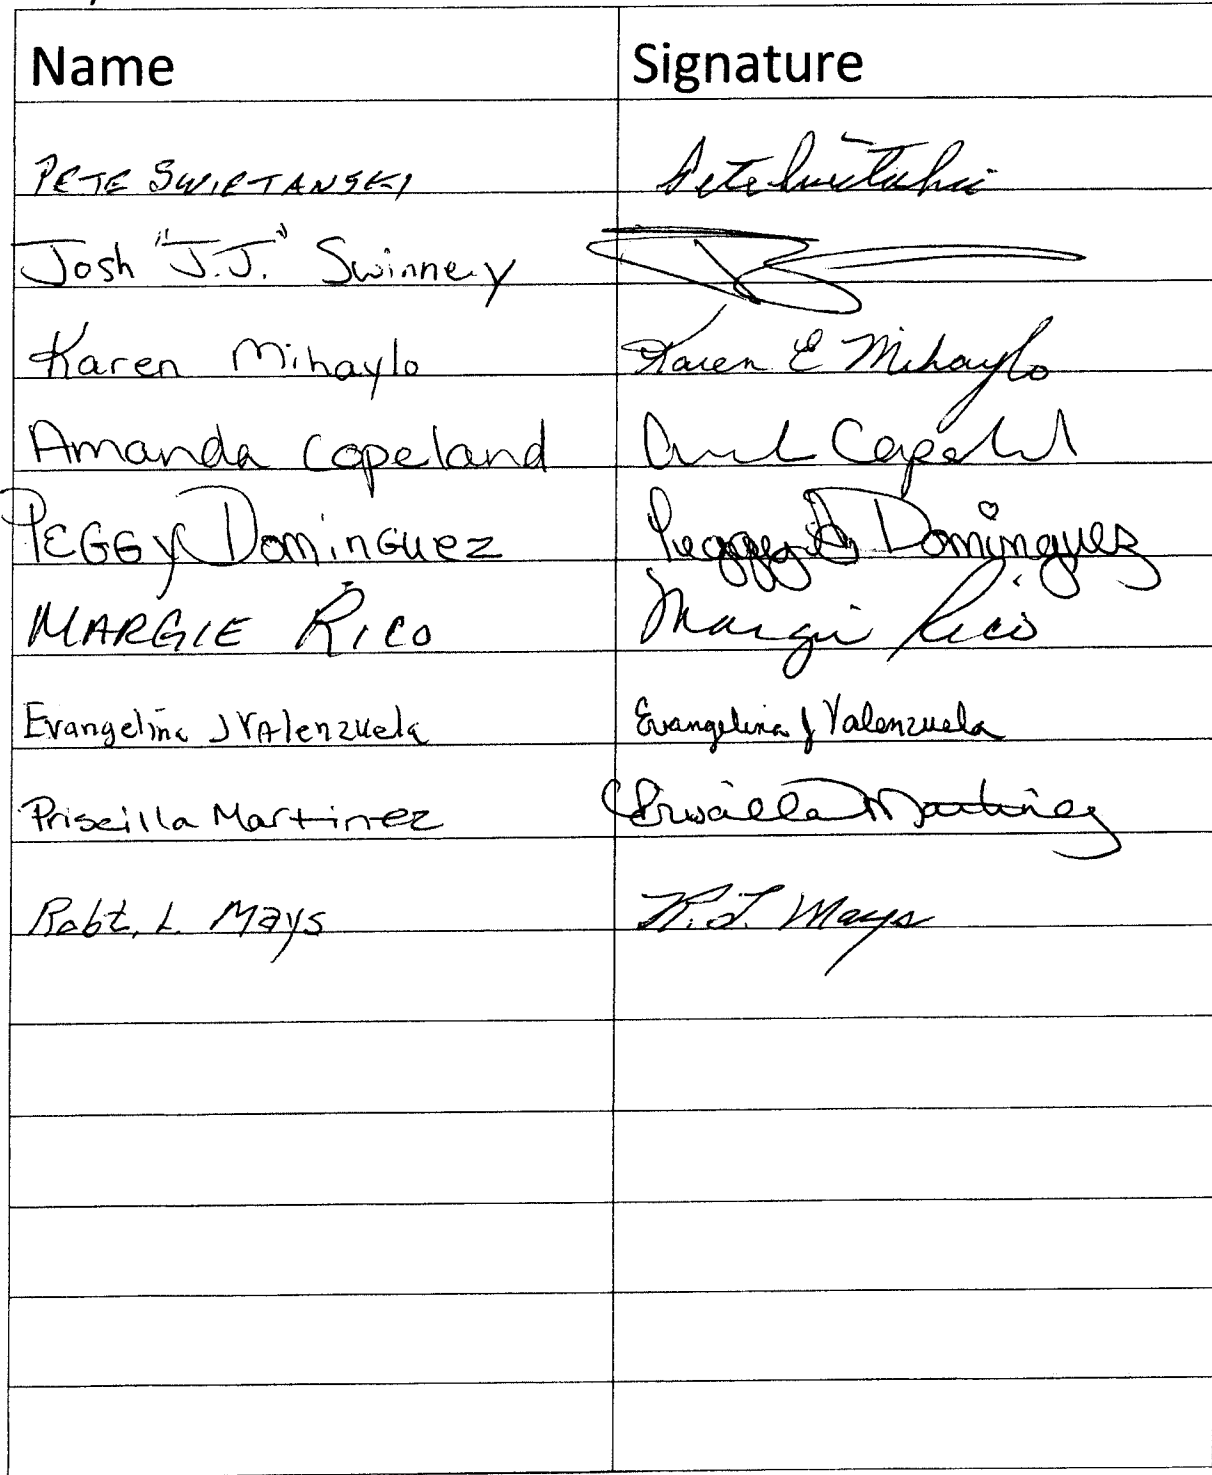 Name Signature
PETE SWIETANSKI
Josh "J.J." Swinney
Karen Mihaylo Karen E Mihaylo
Amanda Copeland
PEGGY DOMINGUEZ Peggy Dominguez
MARGIE RICO Margie Rico
Evangelina J VAlenzuela Evangelina J Valenzuela
Priscilla Martinez Priscilla Martinez
Robt. L. Mays R.L. Mays